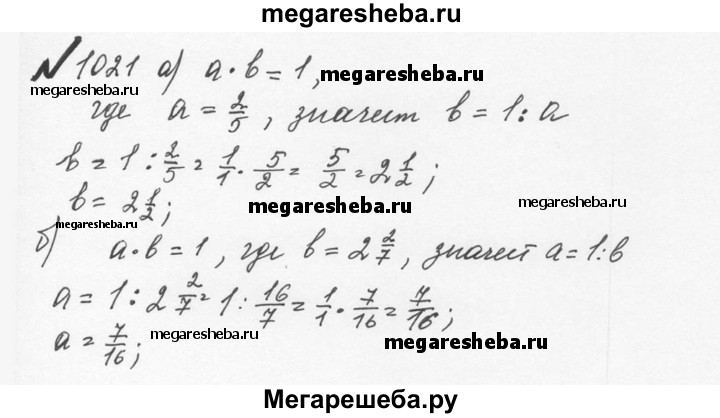 megaresheba.ru
№ 1021 а) a · b = 1, megaresheba.ru
megaresheba.ru
где a = 2/5, значит b = 1 : a
b = 1 : 2/5 = 1/1 · 5/2 = 5/2 = 2 1/2;
b = 2 1/2; megaresheba.ru megaresheba.ru
megaresheba.ru
б) a · b = 1, где b = 2 2/7, значит a = 1 : b
a = 1 : 2 2/7 = 1 : 16/7 = 1/1 · 7/16 = 7/16;
a = 7/16; megaresheba.ru megaresheba.ru
Мегарешеба.ру